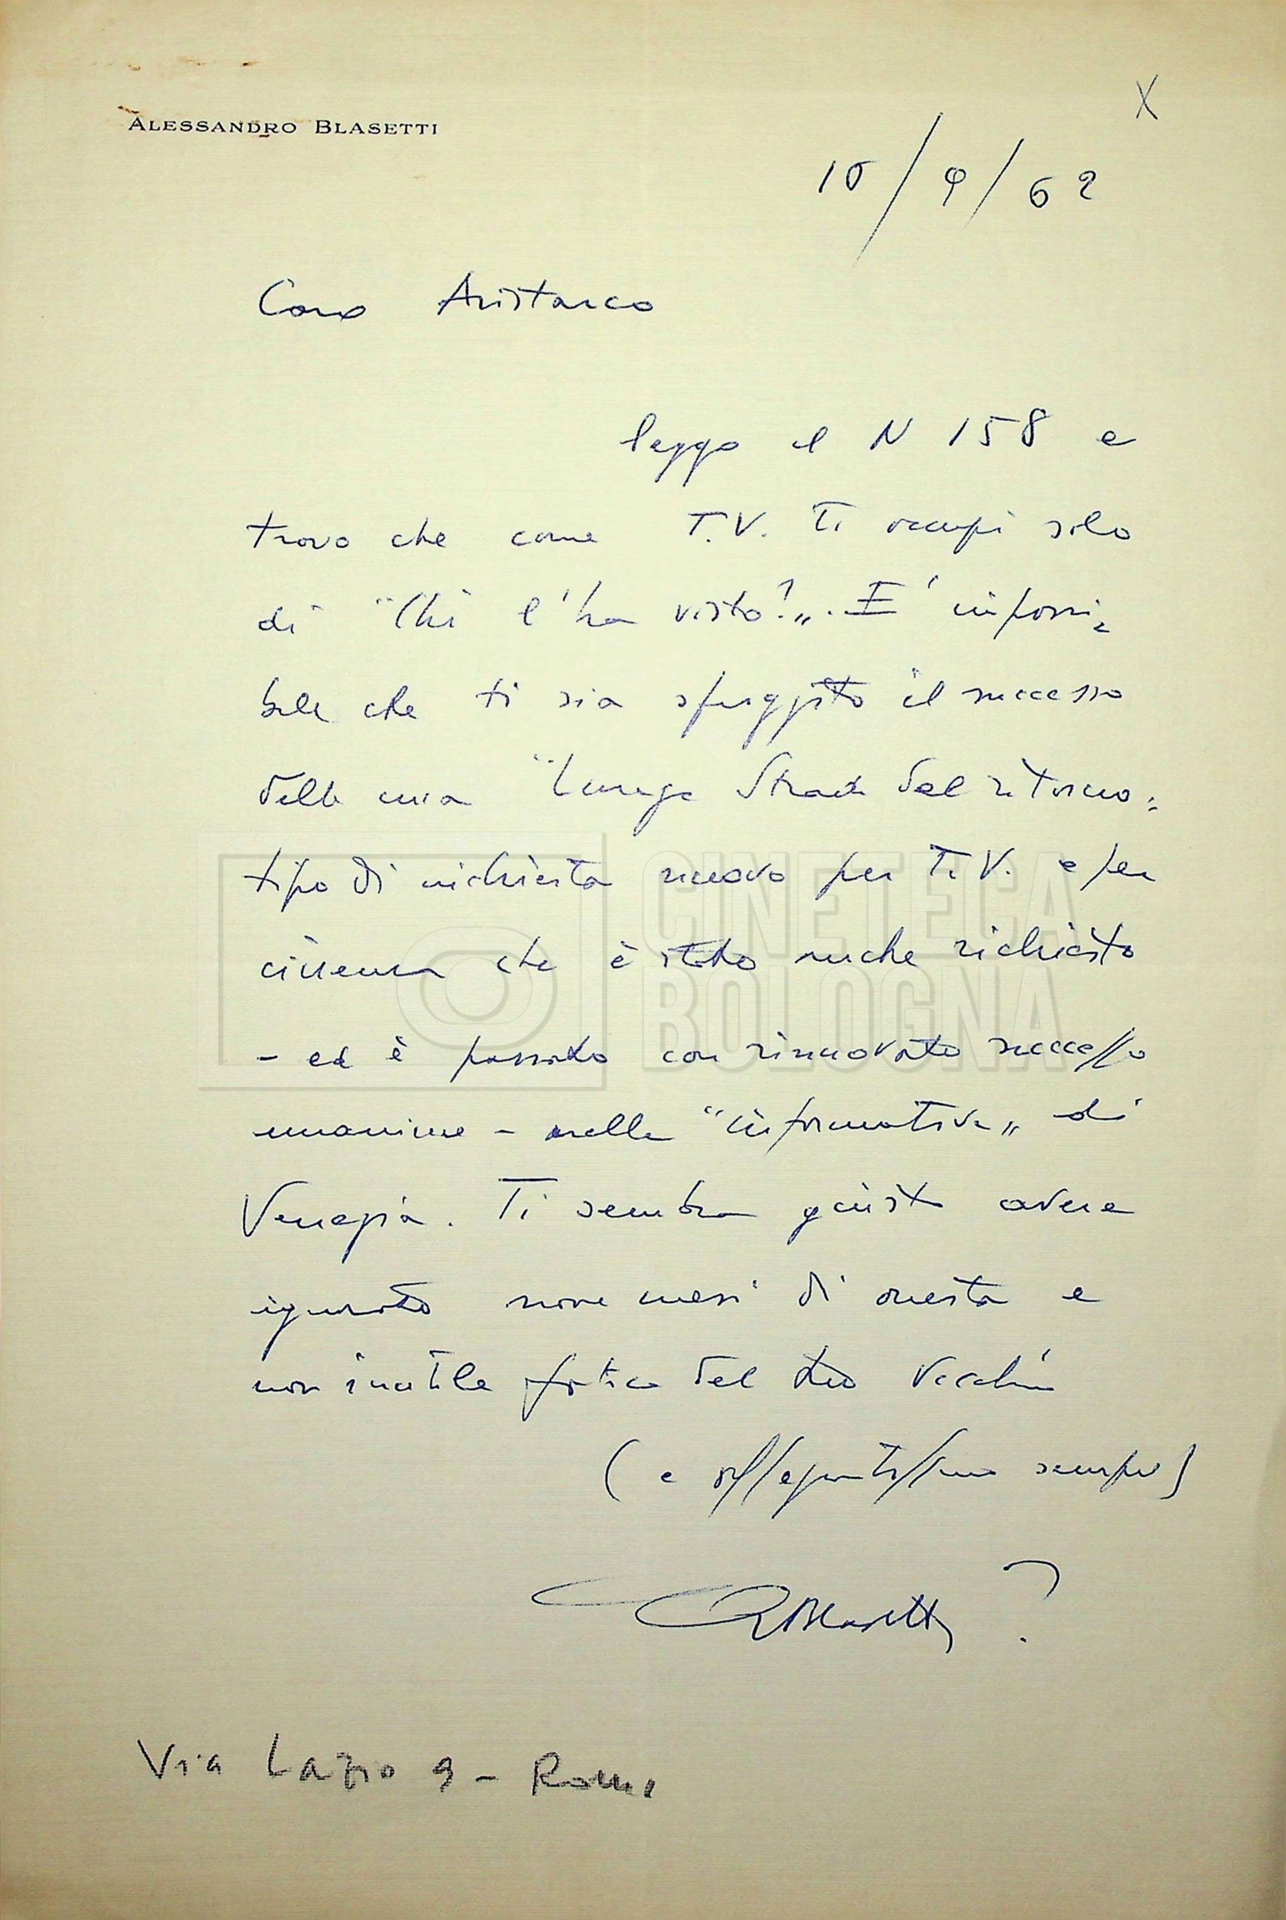 ALESSANDRO BLASETTI
X
10/9/62
Caro Aristarco
leggo il N 158 e
trovo che come T.V. Ti occupi solo
di "Chi l'ha visto?". E' impossi=
bile che ti sia sfuggito il successo
della mia "Lunga Strada del ritorno:
tipo di inchiesta nuovo per T.V. e per
cinema che è stato anche richiesto
- ed è passato con rinnovato successo
unanime - nella "informativa" di
Venezia. Ti sembra giusto avere
ignorato nove mesi di onesta e
non inutile fatica del tuo vecchio
(e affezionatissimo sempre)
Blasetti ?
Via Lazio 9 - Roma
CINETECA
BOLOGNA